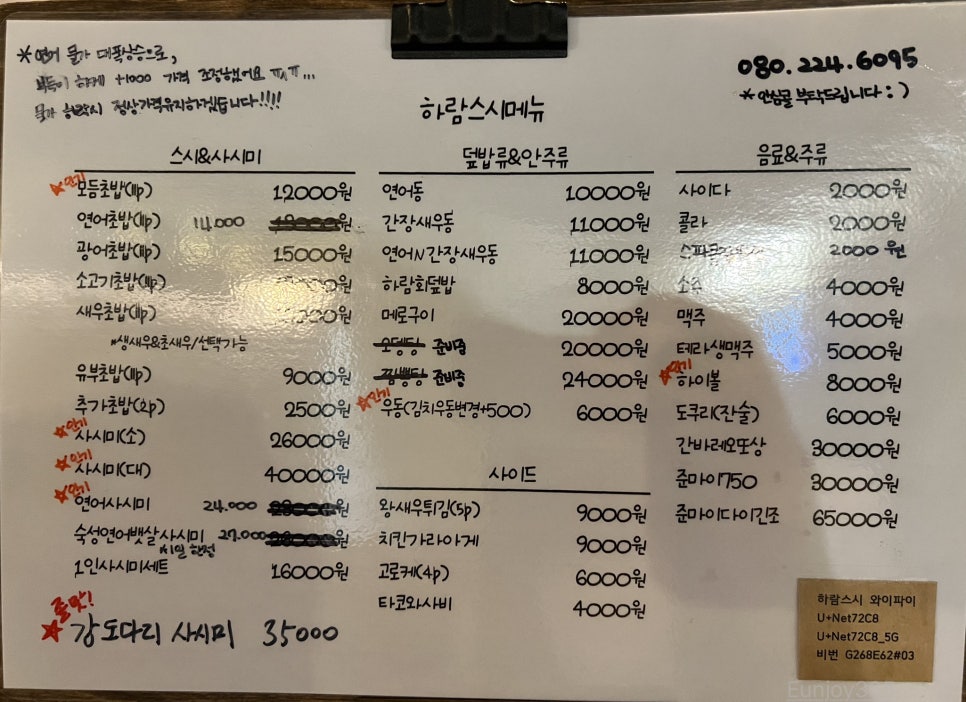 *연어 물가 대폭상승으로,
부득이 하게 +1000 가격 조정했어요 ㅠㅅㅠ...
물가 하락시 정상가격유지하겠습니다!!!!
080.224.6095
*안심콜 부탁드립니다:)
하람스시메뉴
스시&사시미
인기
모듬초밥(11p) 12000원
연어초밥(11p) 14.000
광어초밥(11p) 15000원
소고기초밥(11p)
새우초밥(11p)
*생새우&초새우/선택가능
유부초밥(11p) 9000원
추가초밥(2p) 2500원
인기
사시미(소) 26000원
인기
사시미(대) 40000원
인기
연어사시미 24.000
숙성연어뱃살사시미 27.000
*1일 한정
1인사시미세트 16000원
존맛!
강도다리 사시미 35000
덮밥류&안주류
연어동 10000원
간장새우동 11000원
연어N간장새우동 11000원
하람회덮밥 8000원
메로구이 20000원
오뎅탕 준비중 20000원
짬뽕탕 준비중 24000원
인기
우동(김치우동변경+500) 6000원
사이드
왕새우튀김(5p) 9000원
치킨가라아게 9000원
고로케(4p) 6000원
타코와사비 4000원
음료&주류
사이다 2000원
콜라 2000원
2000원
소주 4000원
맥주 4000원
테라생맥주 5000원
인기
하이볼 8000원
도쿠리(잔술) 6000원
간바레오또상 30000원
준마이750 30000원
준마이다이긴조 65000원
하람스시 와이파이
U+Net72C8
U+Net72C8_5G
비번 G268E62#03